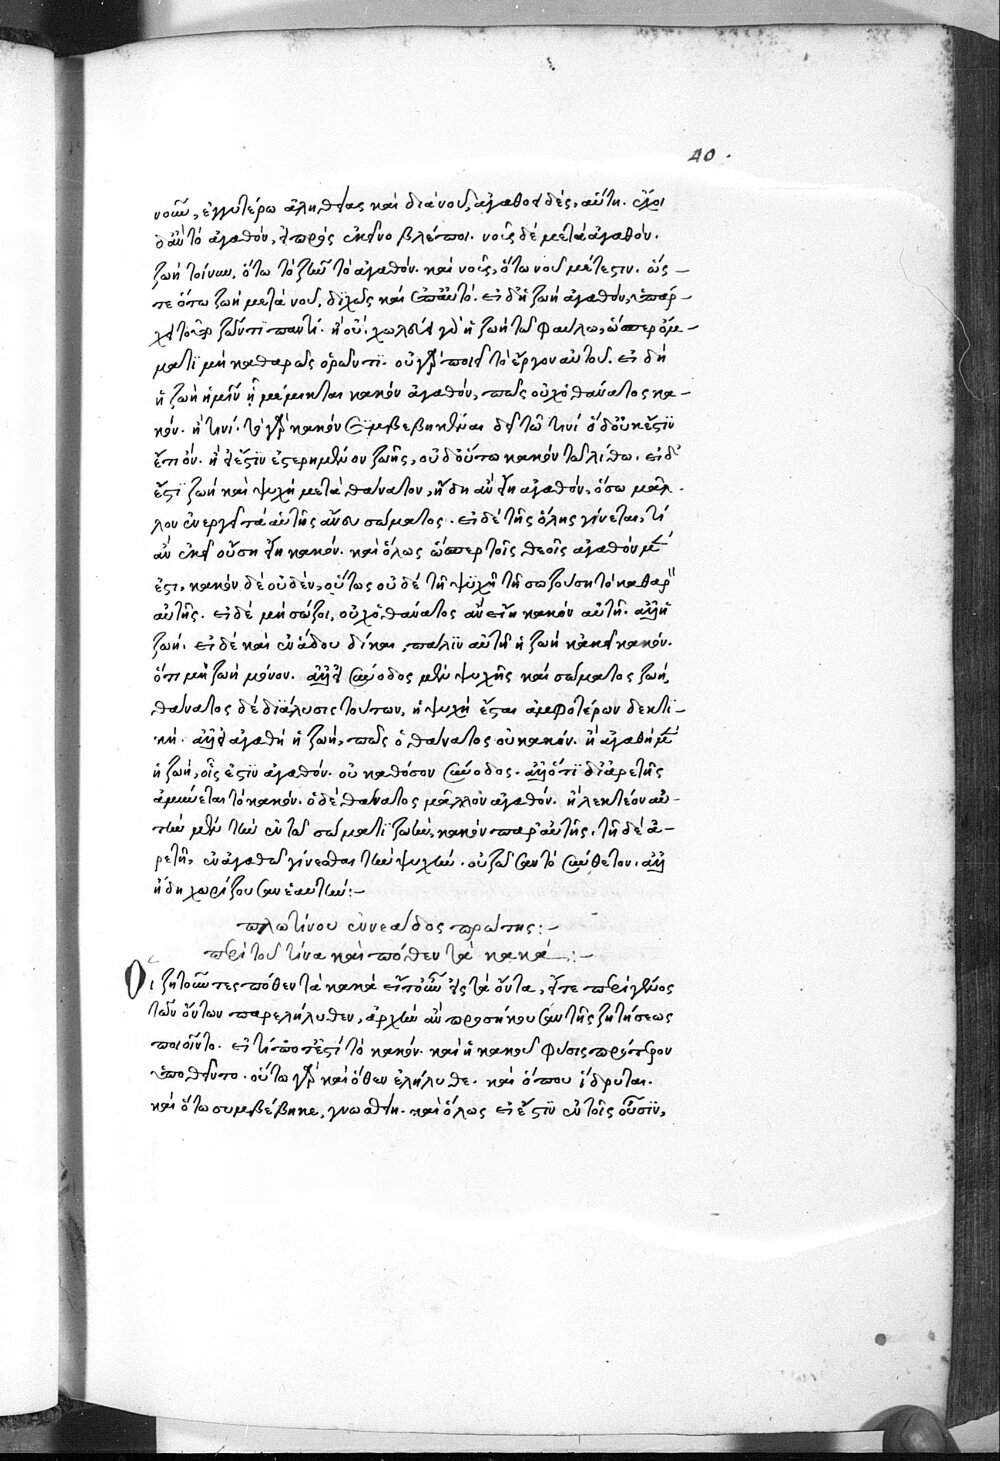 40.
νοῦν, ἐγγυτέρω ἀληθείας καὶ διὰ νοῦ, ἀγαθοειδές, αὕτη. ἔχοι
δ' ἂν τὸ ἀγαθόν, εἰ πρὸς ἐκεῖνο βλέποι. νοῦς δὲ μετὰ ἀγαθόν.
ζωὴ τοίνυν, ὅτω τὸ ζῆν τὸ ἀγαθόν. καὶ νοῦς, ὅτω νοῦ μέτεστιν. ὥς-
τε ὅτω ζωὴ μετὰ νοῦ, διχῶς καὶ ἐπ' αὐτό. εἰ δ' ἡ ζωὴ ἀγαθόν, ὑπάρ-
χει τοῦτο ζῶντι παντί. ἢ οὔ. χωλεύει γὰρ ἡ ζωὴ τῶ φαύλω, ὥσπερ ὄμ-
ματι μὴ καθαρῶς ὁρῶντι. οὐ γὰρ ποιεῖ τὸ ἔργον αὐτοῦ. εἰ δὴ
ἡ ζωὴ ἡμῖν ᾗ μέμικται κακὸν ἀγαθόν, πῶς οὐχ ὁ θάνατος κα-
κόν. ἢ τινί. τὸ γὰρ κακὸν συμβεβηκέναι δεῖ τῶ τινί ὃ δ' οὐκ ἔστιν
ἔτι ὄν. ἢ εἰ ἔστιν ἐστερημένον ζωῆς, οὐδ' οὕτω κακὸν τῶ λίθω. εἰ δ'
ἔστι ζωὴ καὶ ψυχὴ μετὰ θάνατον, ἤδη ἂν εἴη ἀγαθόν, ὅσω μᾶλ-
λον ἐνεργεῖ τὰ αὑτῆς ἄνευ σώματος. εἰ δὲ τῆς ὅλης γίνεται, τί
ἂν ἐκεῖ οὔση εἴη κακόν. καὶ ὅλως ὥσπερ τοῖς θεοῖς ἀγαθὸν μέν
ἐστι, κακὸν δὲ οὐδέν, οὕτως οὐδὲ τῇ ψυχῇ τῇ σωζούση τὸ καθαρὸν
αὐτῆς. εἰ δὲ μὴ σώζοι, οὐχ ὁ θάνατος ἂν εἴη κακὸν αὐτῇ. ἀλλ' ἡ
ζωή. εἰ δὲ καὶ ἐν ἅδου δίκαι, πάλιν αὐτῇ ἡ ζωὴ κἀκεῖ κακόν.
ὅτι μὴ ζωὴ μόνον. ἀλλ' εἰ σύνοδος μὲν ψυχῆς καὶ σώματος ζωή,
θάνατος δὲ διάλυσις τούτων, ἡ ψυχὴ ἔσται ἀμφοτέρων δεκτι-
κή. ἀλλ' εἰ ἀγαθὴ ἡ ζωή, πῶς ὁ θάνατος οὐ κακόν. ἢ ἀγαθὴ μὲν
ἡ ζωή, οἷς ἐστιν ἀγαθόν. οὐ καθόσον σύνοδος. ἀλλ' ὅτι δι' ἀρετῆς
ἀμύνεται τὸ κακόν. ὁ δὲ θάνατος μᾶλλον ἀγαθόν. ἢ λεκτέον αὐ-
τὴν μὲν τὴν ἐν τῶ σώματι ζωήν, κακὸν παρ' αὐτῆς. τῇ δὲ ἀ-
ρετῇ, ἐν ἀγαθῶ γίνεσθαι τὴν ψυχήν. οὐ ζῶσαν τὸ σύνθετον. ἀλλ'
ἤδη χωρίζουσαν ἑαυτήν:-
πλωτίνου ἐννεάδος πρώτης:-
περὶ τοῦ τίνα καὶ πόθεν τὰ κακά:-
Οἱ ζητοῦντες πόθεν τὰ κακὰ εἴτ' οὖν εἰς τὰ ὄντα, εἴτε περὶ γένος
τῶν ὄντων παρελήλυθεν, ἀρχὴν ἂν προσήκουσαν τῆς ζητήσεως
ποιοῖντο. εἰ τί ποτ' ἐστὶ τὸ κακόν. καὶ ἡ κακοῦ φύσις πρότερον
ὑποθεῖντο. οὕτω γὰρ καὶ ὅθεν ἐλήλυθε. καὶ ὅπου ἵδρυται.
καὶ ὅτω συμβέβηκε, γνωσθείη. καὶ ὅλως εἰ ἔστιν ἐν τοῖς οὖσιν,